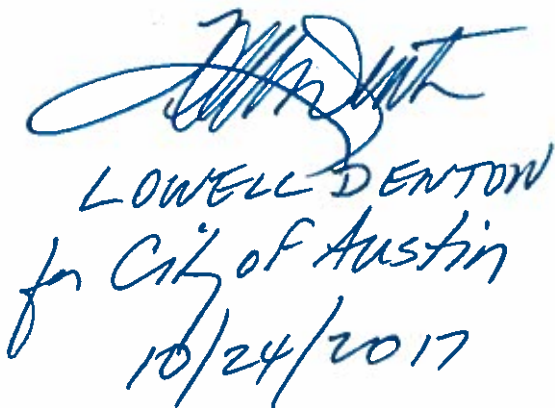 LOWELL DENTON
for City of Austin
10/24/2017